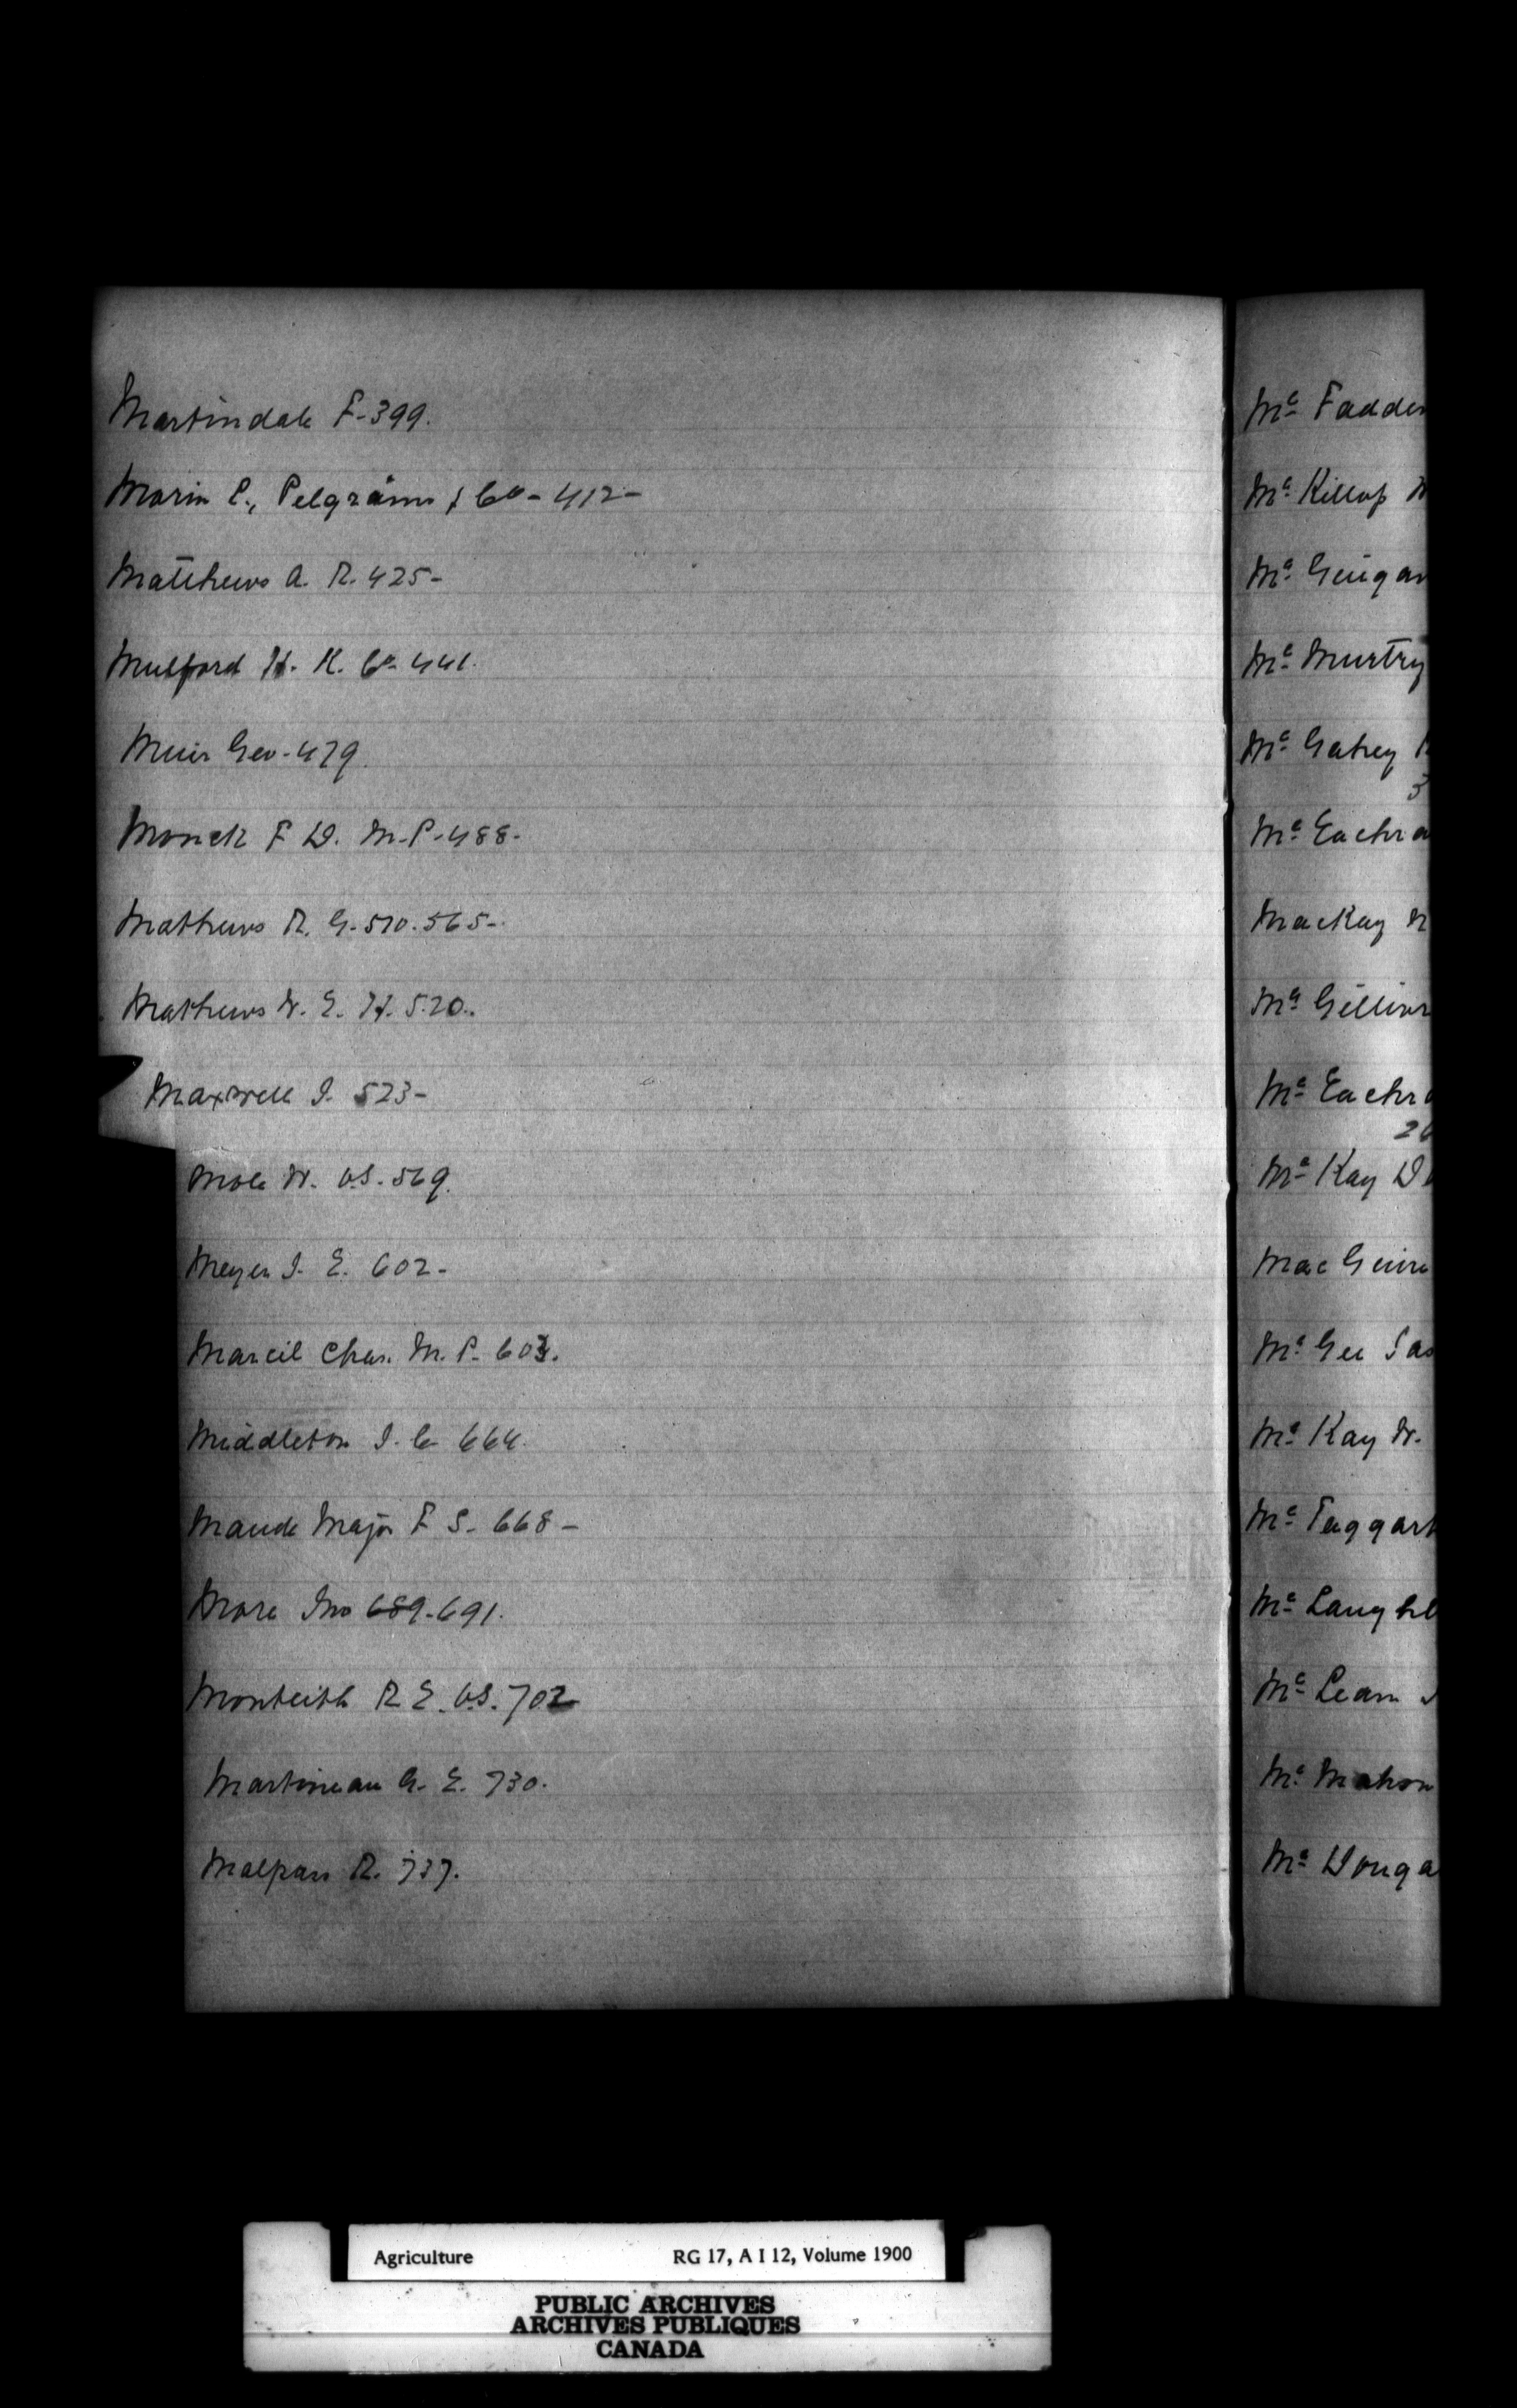 Martindale F. 399.
Morin P., Pelgrims & Co - 412 -
Matthews A. R. 425 -
Mulford H. K. Co - 441.
Muir Geo - 479.
Monck F D. M.P. - 488 -
Mathews R. G. 510. 565 -
Mathews W. E. H. 520.
Maxwell J. 523 -
Mole W. V.S. 569.
Meyer J. E. 602 -
Marcil Chas. M.P. 603.
Middleton J. C 664.
Maude Major F S. 668 -
More Jno 689. 691.
Monteith R E. V.S. 702
Martineau G. E. 730.
Malpass R. 737.
Mc Fadden
Mc Killop
Mc Guigan
Mc Murtry
Mc Gahey
3
Mc Eachra
MacKay
Mc Gilliv
Mc Eachra
26
Mc Kay D
Mac Guire
Mc Gee Jas
Mc Kay W.
Mc Taggart
Mc Laughl
Mc Lean
Mc Mahon
Mc Douga
Agriculture RG 17, A I 12, Volume 1900
PUBLIC ARCHIVES
ARCHIVES PUBLIQUES
CANADA